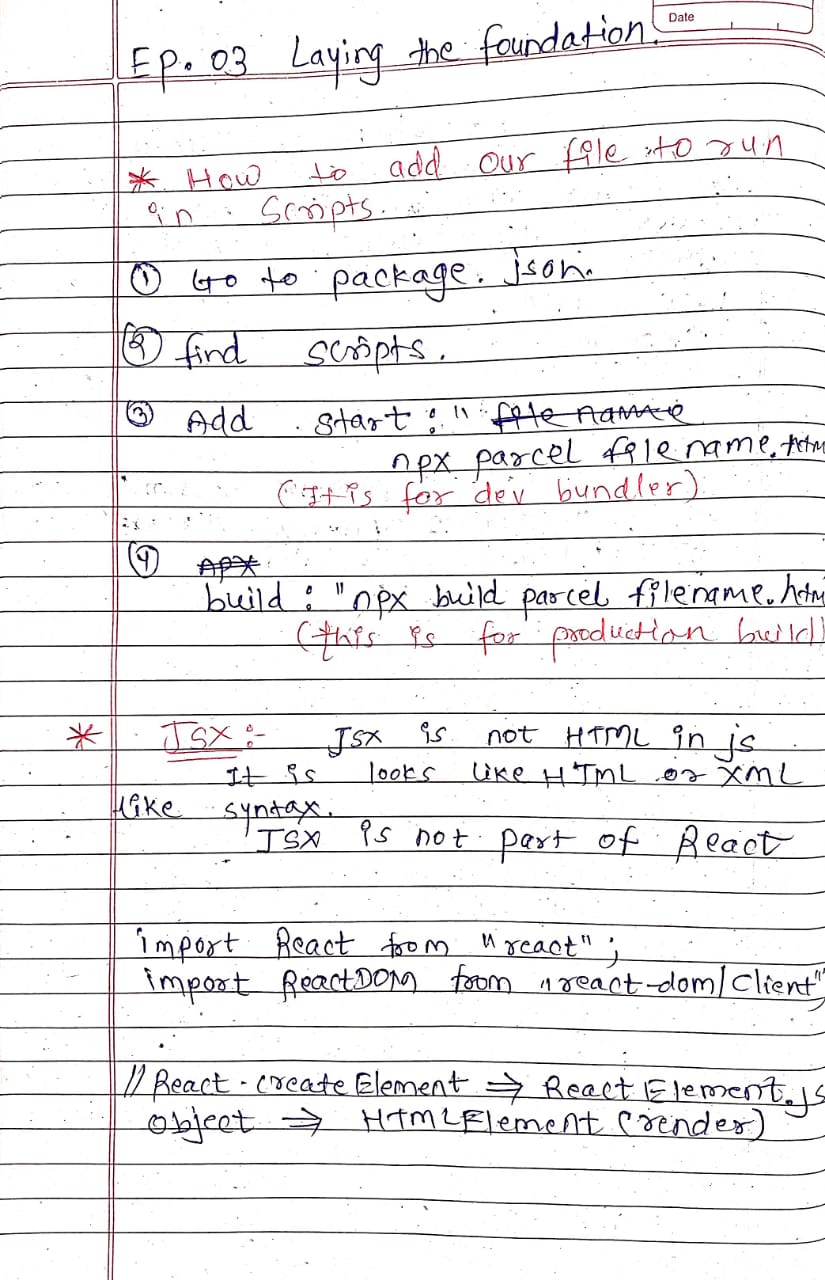 Date
Ep. 03 Laying the foundation.
* How to add our file to run
in Scripts.
① Go to package. json.
② find scripts.
③ Add start : " file name
npx parcel file name. htm
(It is for dev bundler)
④ npx
build : "npx build parcel filename. htm
(this is for production build)
* JSX :- JSX is not HTML in js
It is looks like HTML or XML
like syntax.
JSX is not part of React
import React from "react" ;
import ReactDOM from "react-dom/Client"
// React - createElement ⇒ React Element. js
Object ⇒ HTMLElement (render)